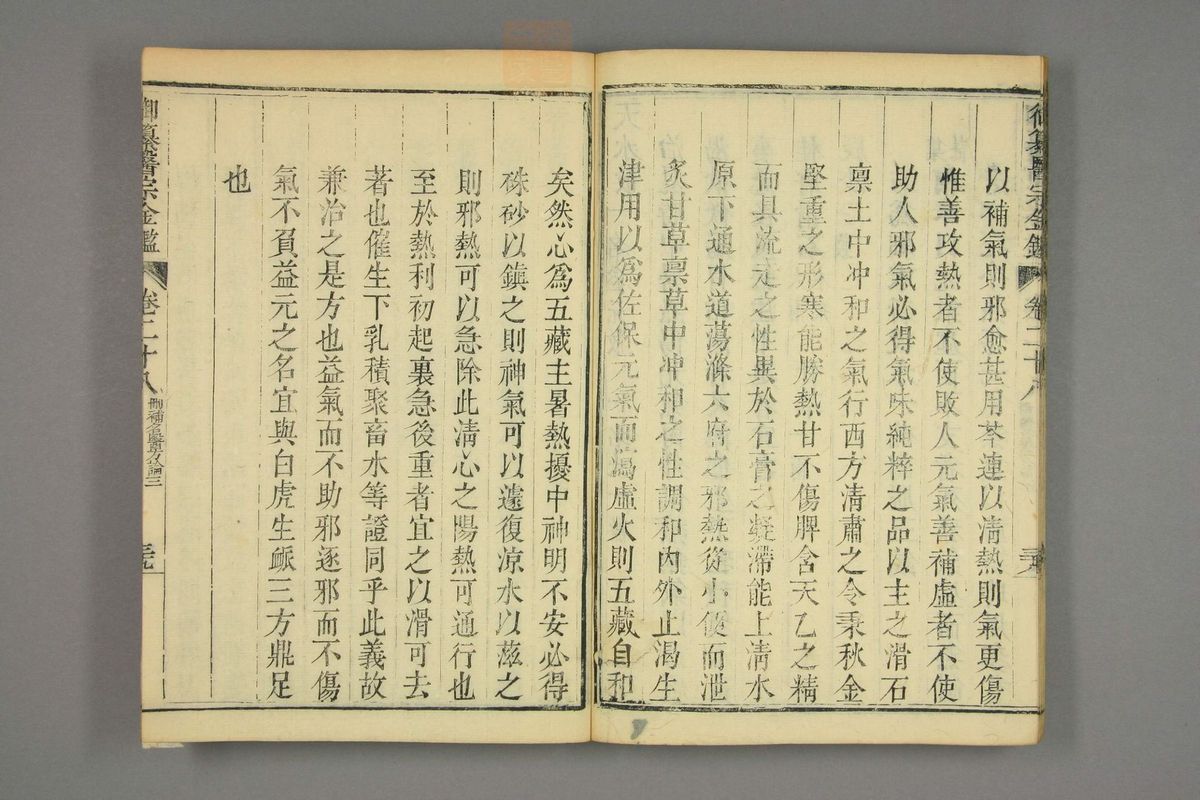 御纂醫宗金鑑 卷二十八
以補氣則邪愈甚用芩連以清熱則氣更傷
惟善攻熱者不使敗人元氣善補虛者不使
助人邪氣必得氣味純粹之品以主之滑石
禀土中冲和之氣行西方清肅之令秉秋金
堅重之形寒能勝熱甘不傷脾含天乙之精
而具流走之性異於石膏之凝滯能上清水
原下通水道蕩滌六府之邪熱從小便而泄
炙甘草禀草中冲和之性調和內外止渴生
津用以爲佐保元氣而瀉虛火則五藏自和
矣然心爲五藏主暑熱擾中神明不安必得
硃砂以鎭之則神氣可以遽復凉水以滋之
則邪熱可以急除此清心之陽熱可通行也
至於熱利初起裏急後重者宜之以滑可去
著也催生下乳積聚畜水等證同乎此義故
兼治之是方也益氣而不助邪逐邪而不傷
氣不負益元之名宜與白虎生脈三方鼎足
也
御纂醫宗金鑑 卷二十八 刪補名醫方論三